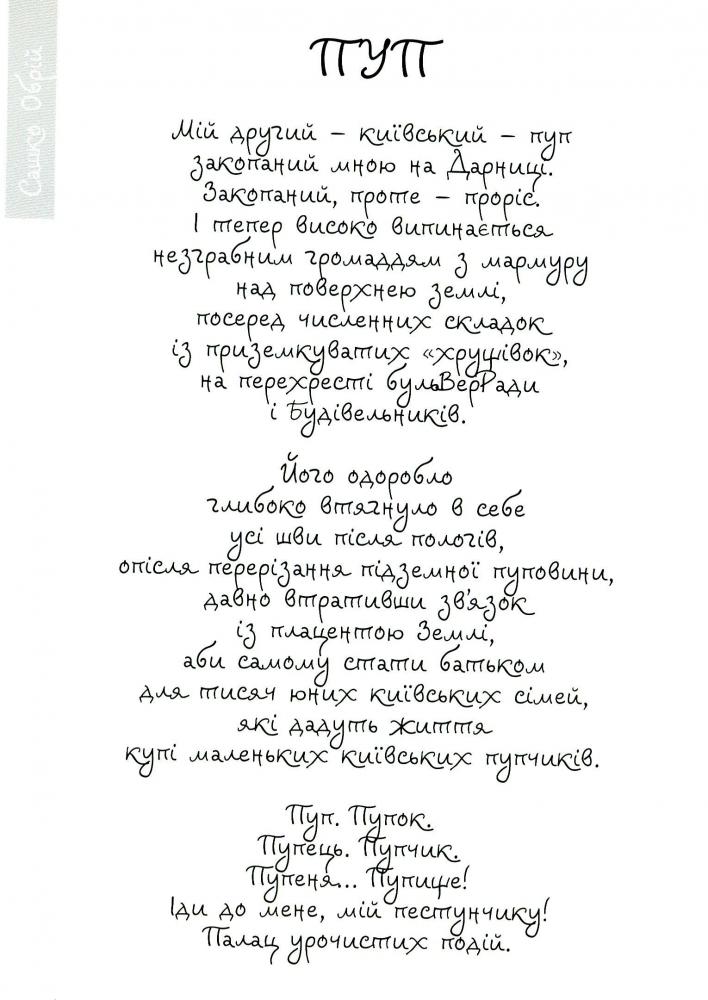 Сашко Обрій
ПУП
Мій другий – київський – пуп
закопаний мною на Дарниці.
Закопаний, проте – проріс.
І тепер високо випинається
незграбним громаддям з мармуру
над поверхнею землі,
посеред численних складок
із приземкуватих «хрущівок»,
на перехресті бульВерРади
і Будівельників.
Його одоробло
глибоко втягнуло в себе
усі шви після пологів,
опісля перерізання підземної пуповини,
давно втративши зв'язок
із плацентою Землі,
аби самому стати батьком
для тисяч юних київських сімей,
які дадуть життя
купі маленьких київських пупчиків.
Пуп. Пупок.
Пупець. Пупчик.
Пупеня... Пупище!
Іди до мене, мій пестунчику!
Палац урочистих подій.